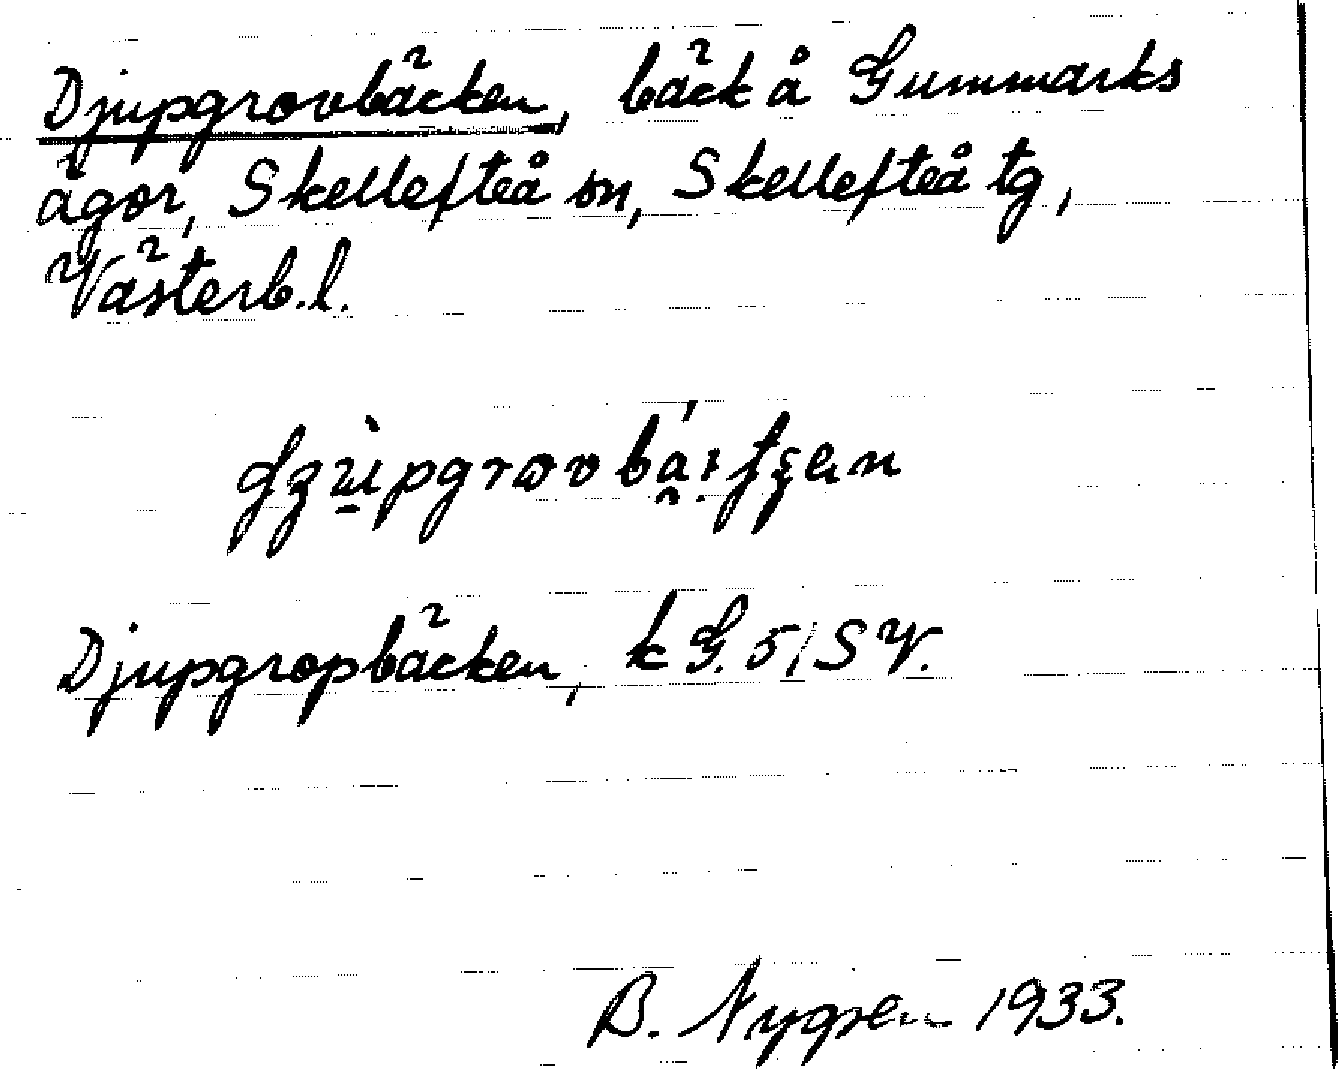 Djupgrovbäcken, bäck å Gummarks
ägor, Skellefteå sn, Skellefteå tg,
Västerb.l.
Djupgropbäcken, k G. 5/SV.
B. Nygren 1933.